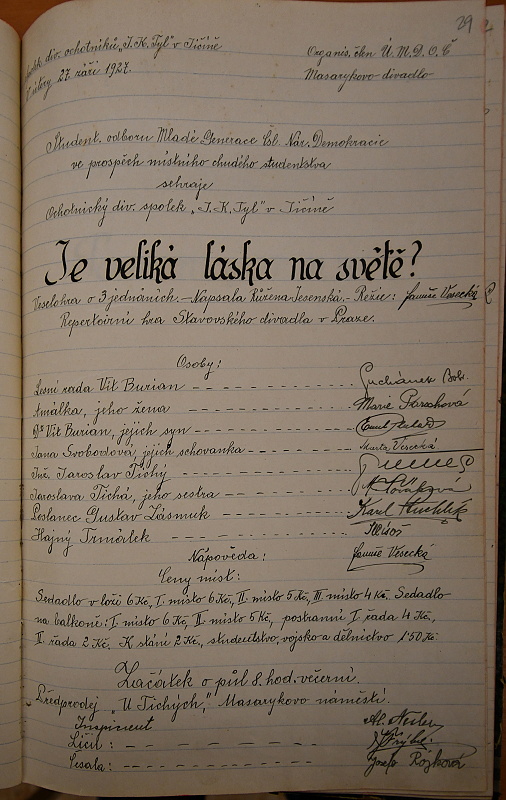 29
div. ochotníků „J. K. Tyl" v Jičíně
27. září 1927.
Organis. člen Ú. M. D. O. Č
Masarykovo divadlo
Student. odboru Mladé Generace Čsl. Nár. Demokracie
ve prospěch místního chudého studentstva
sehraje
Ochotnický div. spolek „J. K. Tyl" v Jičíně
Je veliká láska na světě?
Veselohra o 3 jednáních. - Napsala Růžena Jesenská. - Režie: Jamise Vesecká
Repertoirní hra Stavovského divadla v Praze.
Osoby:
Lesní rada Vít Burian
Amálka, jeho žena Marie
Dr Vít Burian, jejich syn Emil
Jana Svobodová, jejich schovanka Marta Vesecká
Inž. Jaroslav Tichý
Jaroslava Tichá, jeho sestra
Poslanec Gustav Zásmuk Karel
Hajný Trmálek
Nápověda: Vesecká
Ceny míst:
Sedadlo v loži 6 Kč, I. místo 6 Kč, II. místo 5 Kč, III. místo 4 Kč. Sedadlo
na balkoně: I. místo 6 Kč, II. místo 5 Kč, postranní I. řada 4 Kč,
II. řada 2 Kč. K stání 2 Kč, studentstvo, vojsko a dělnictvo 1'50 Kč.
Začátek o půl 8. hod. večerní.
Předprodej „U Tichých," Masarykovo náměstí.
Inspicient Al.
Líčil:
Česala: Josefa Rojková